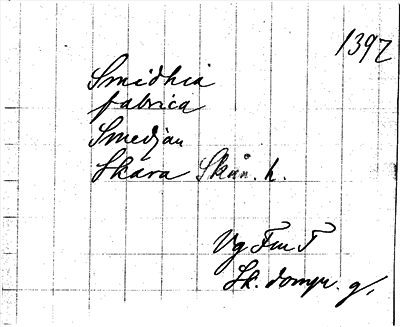 1397
Smidhia
fabrica
Smedjan
Skara Skån. h.
Vg Fm T
Sk. dompr. g.